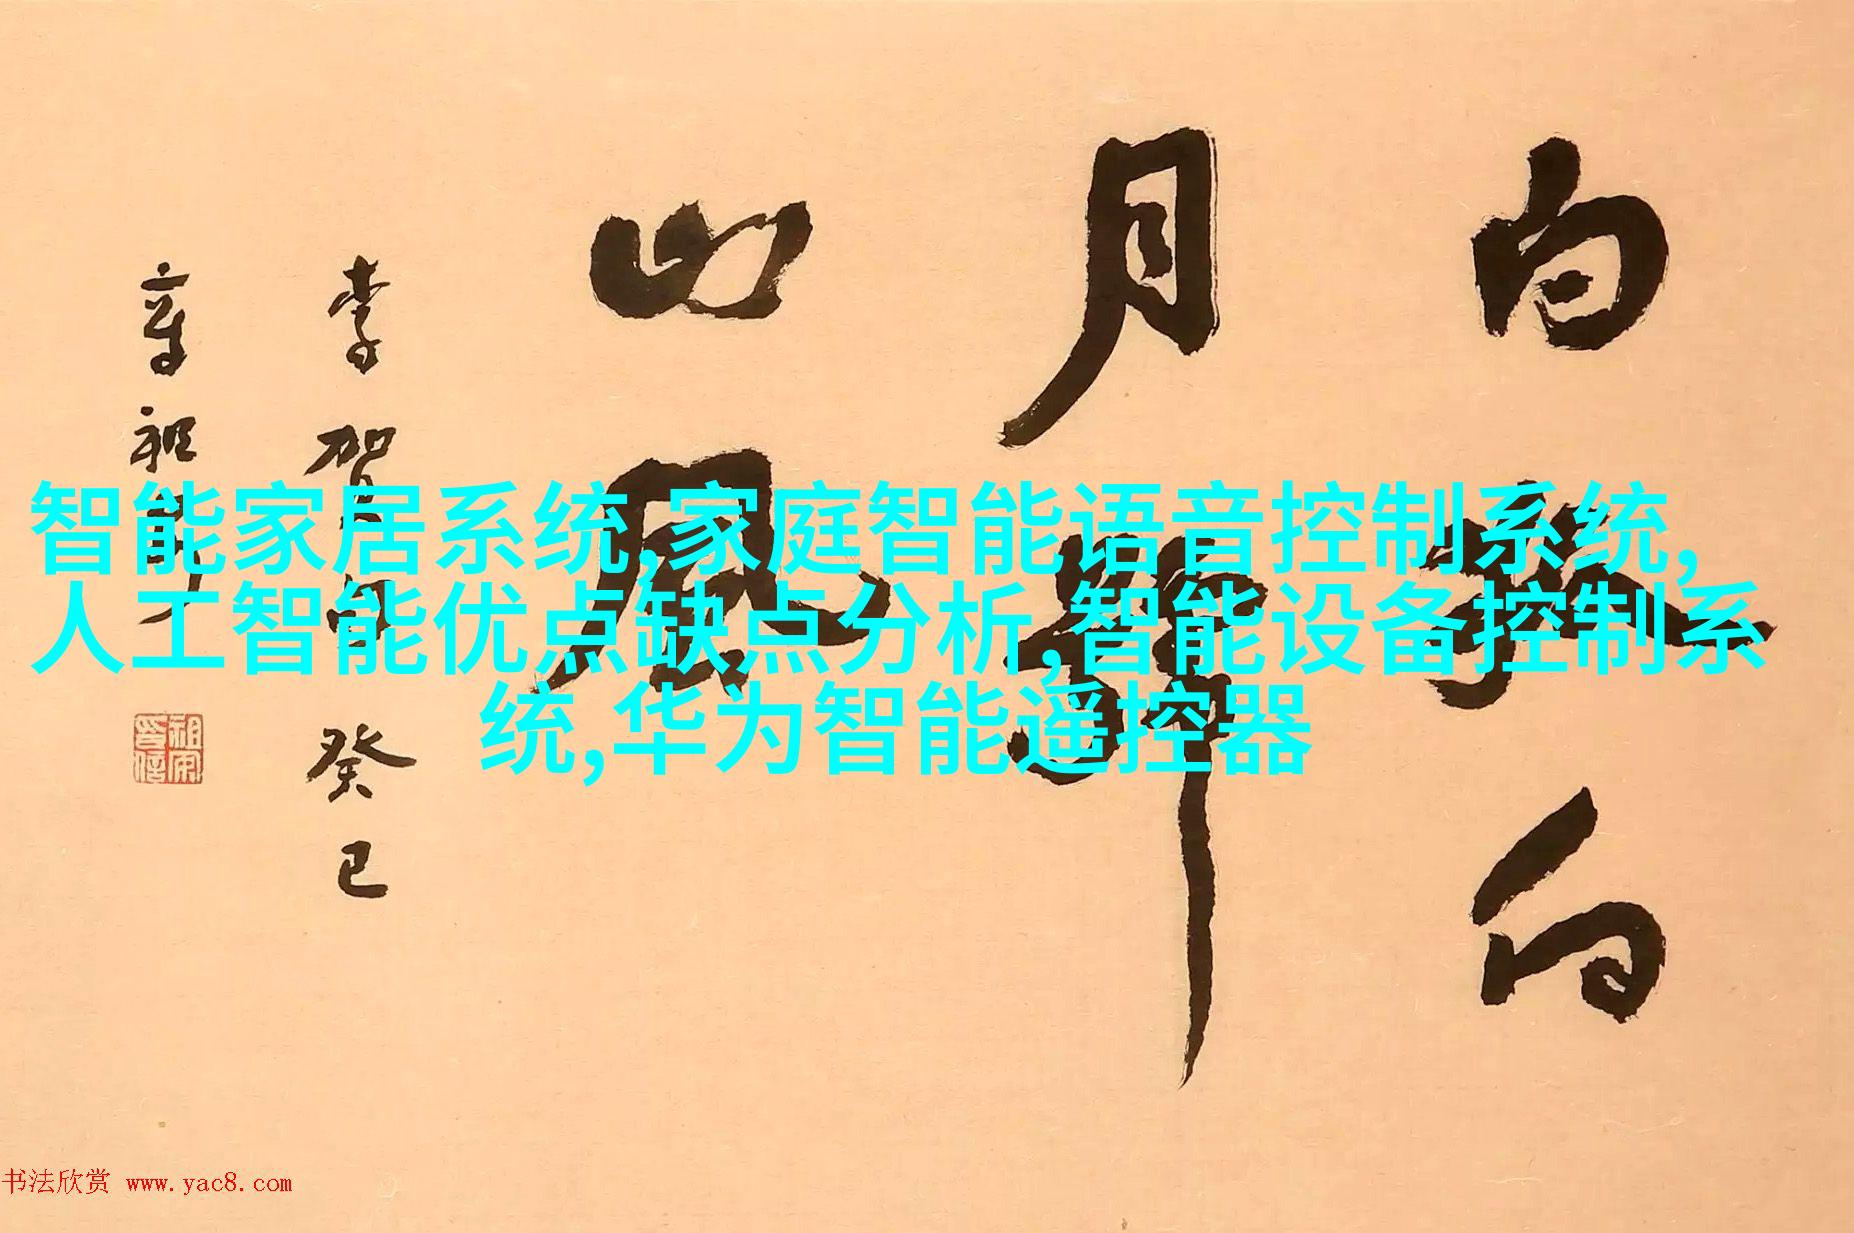 白狐向
月號
山風
李賀句癸巳
章祖安
祖安印信
智能家居系统,家庭智能语音控制系统,
人工智能优点缺点分析,智能设备控制系
统,华为智能遥控器
书法欣赏 www.yac8.com